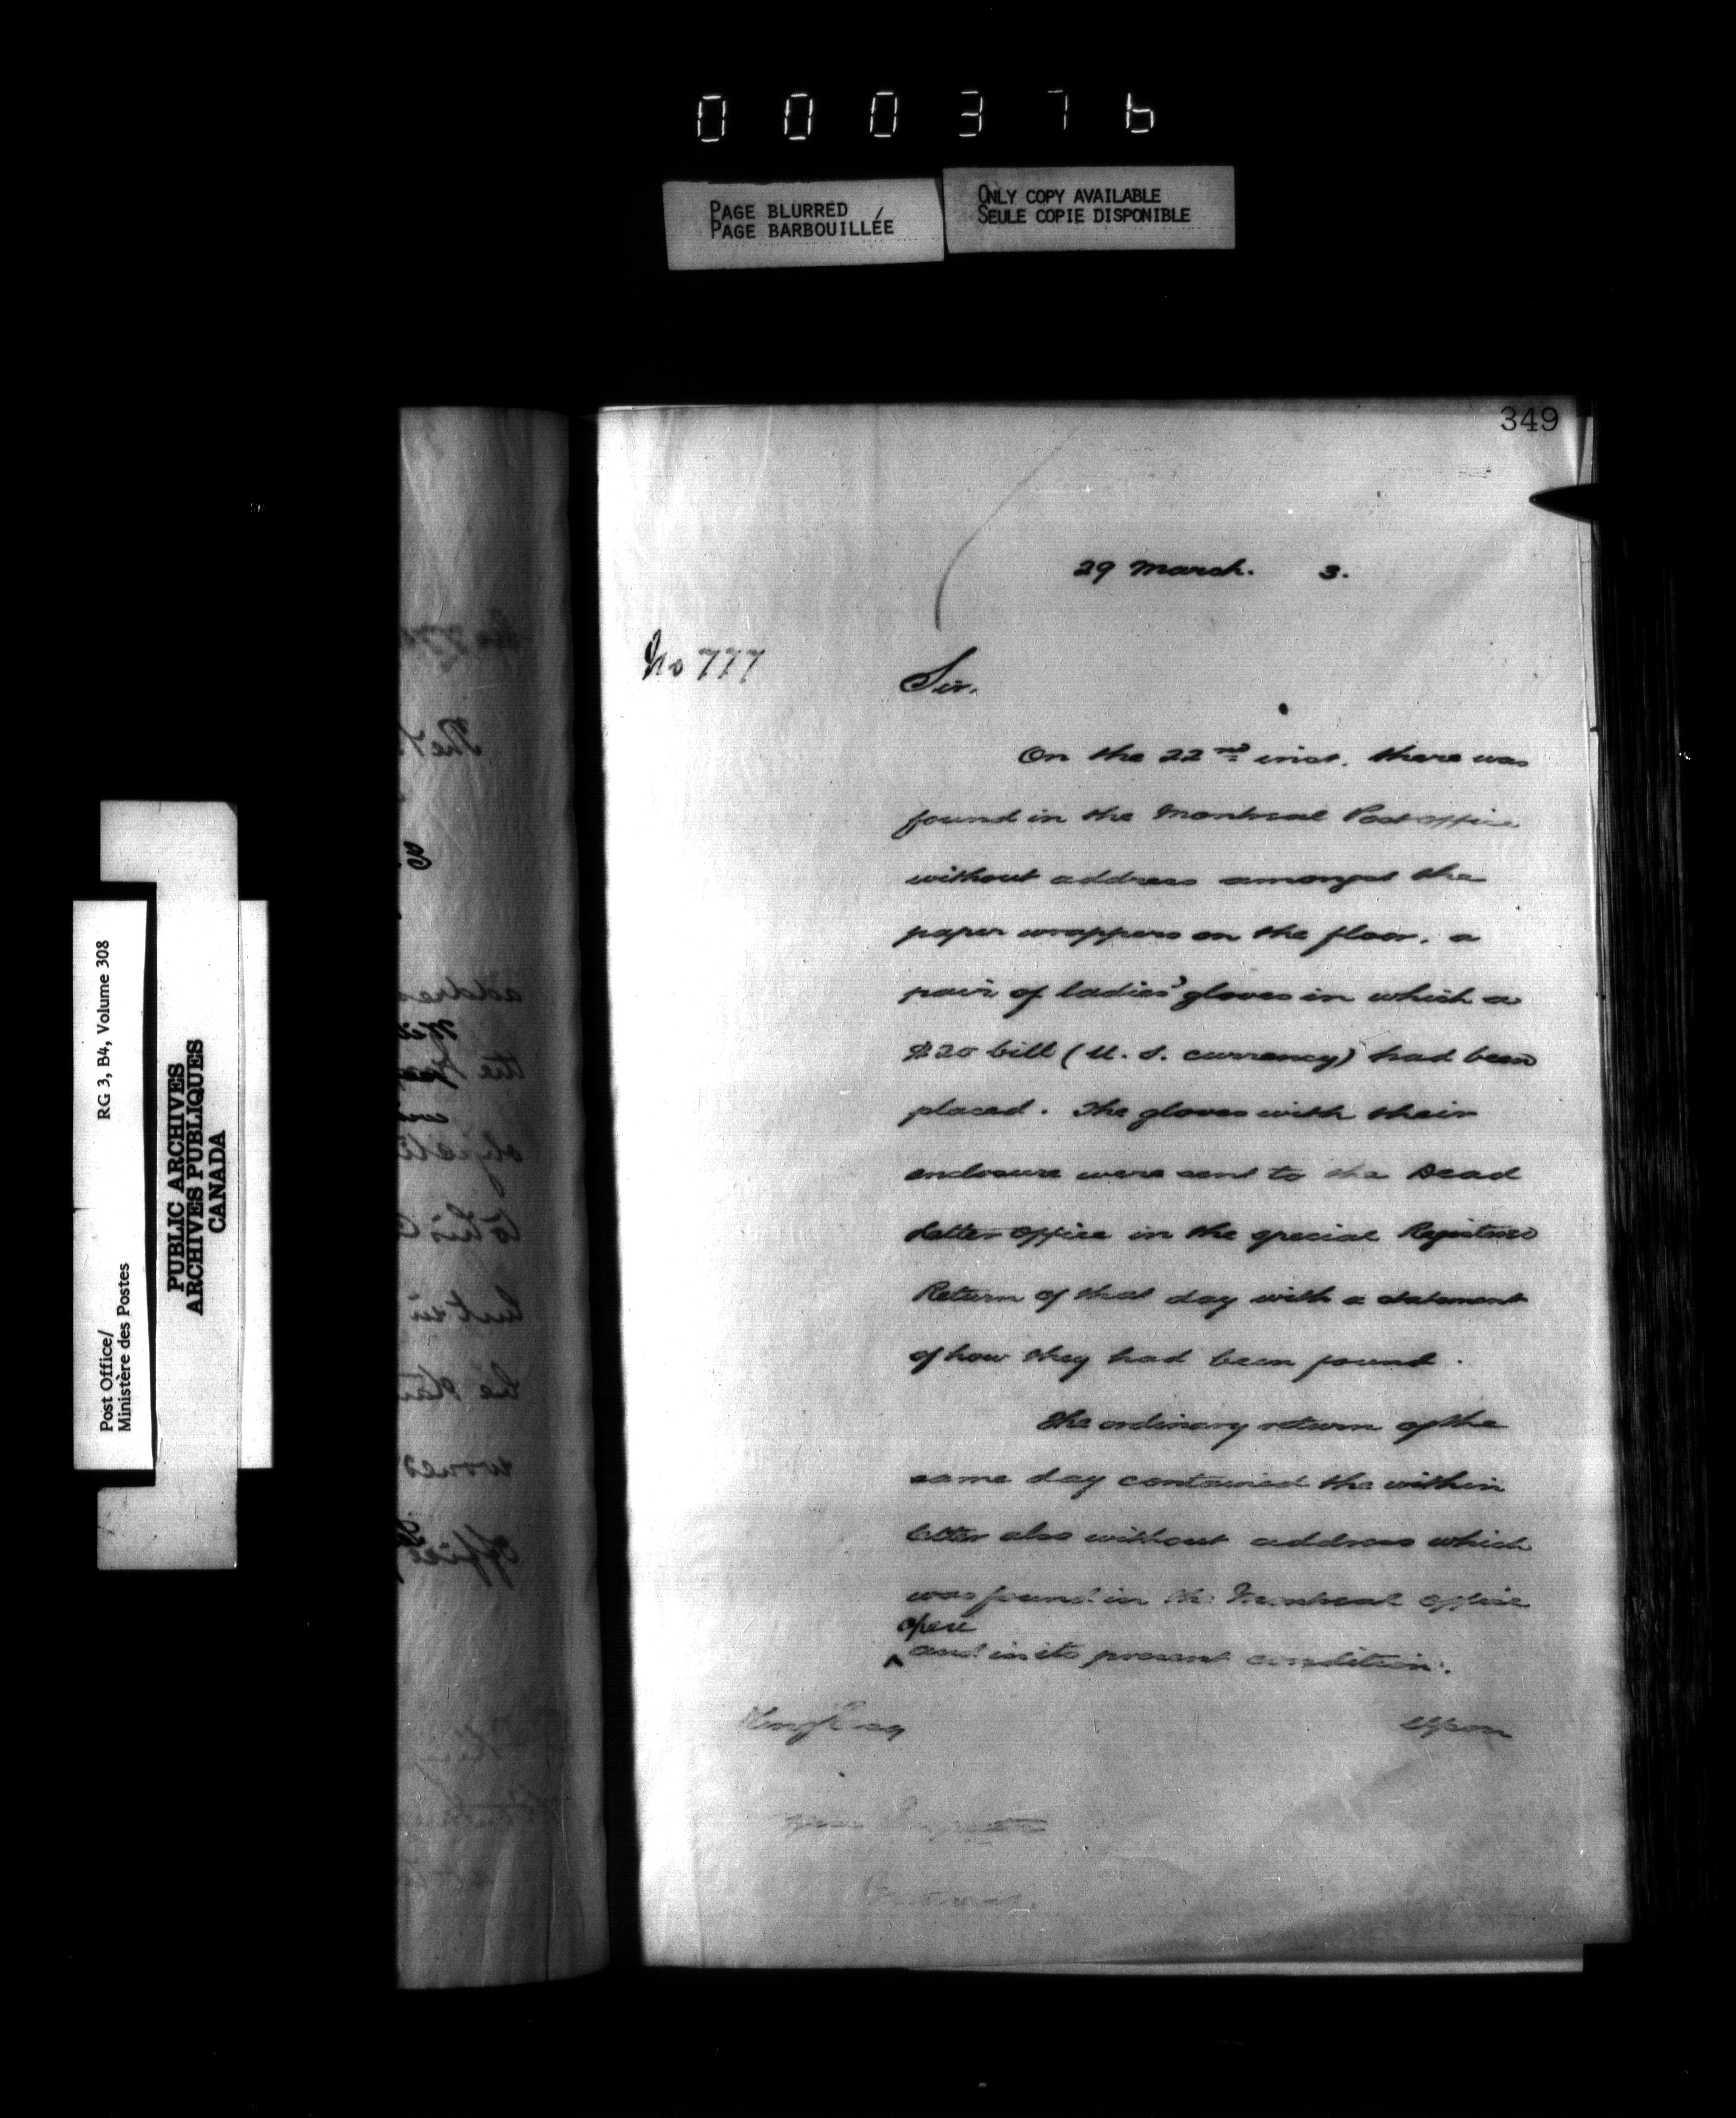 000376
PAGE BLURRED
PAGE BARBOUILLÉE
ONLY COPY AVAILABLE
SEULE COPIE DISPONIBLE
349
29 March. 3.
No 777
Sir.
On the 22nd inst. there was
found in the Montreal Post office
without address amongst the
paper wrappers on the floor, a
pair of ladies' gloves in which a
$20 bill (U. S. currency) had been
placed. The gloves with their
enclosure were sent to the Dead
Letter Office in the special Registered
Return of that day with a statement
of how they had been found.
The ordinary return of the
same day contained the within
letter also without address which
was found in the Montreal Office
open
^ and in its present condition.
Upon
Inspector
Montreal.
RG 3, B4, Volume 308
Post Office/
Ministère des Postes
PUBLIC ARCHIVES
ARCHIVES PUBLIQUES
CANADA